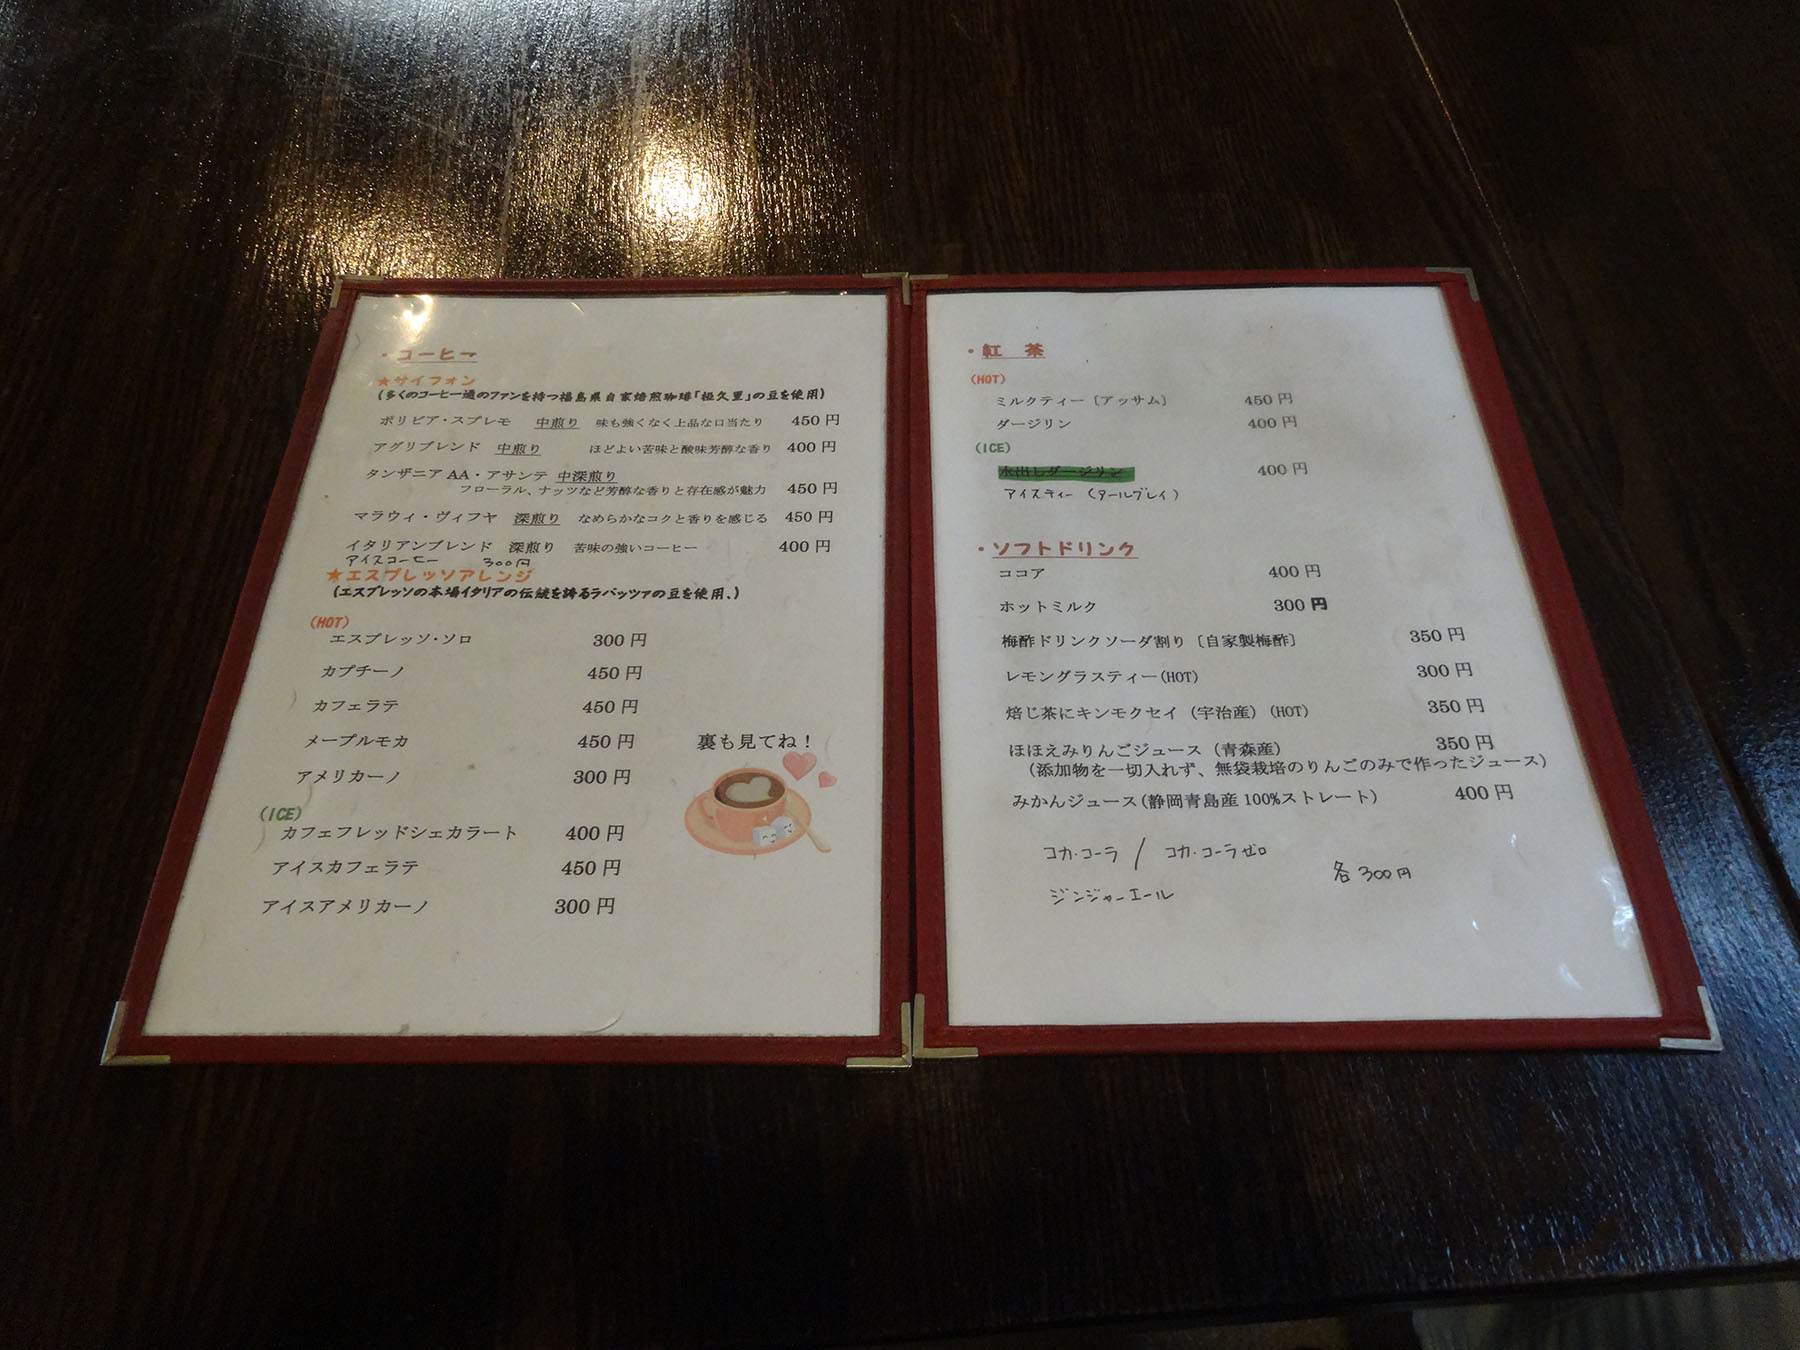 ・コーヒー
★サイフォン
(多くのコーヒー通のファンを持つ福島県自家焙煎珈琲「極久里」の豆を使用)
ボリビア・スプレモ 中煎り 味も強くなく上品な口当たり 450円
アグリブレンド 中煎り ほどよい苦味と酸味芳醇な香り 400円
タンザニアAA・アサンテ 中深煎り
フローラル、ナッツなど芳醇な香りと存在感が魅力 450円
マラウィ・ヴィフヤ 深煎り なめらかなコクと香りを感じる 450円
イタリアンブレンド 深煎り 苦味の強いコーヒー 400円
アイスコーヒー 300円
★エスプレッソアレンジ
(エスプレッソの本場イタリアの伝統を誇るラバッツァの豆を使用、)
(HOT)
エスプレッソ・ソロ 300円
カプチーノ 450円
カフェラテ 450円
メープルモカ 450円
アメリカーノ 300円
裏も見てね！
(ICE)
カフェフレッドシェカラート 400円
アイスカフェラテ 450円
アイスアメリカーノ 300円
・紅 茶
(HOT)
ミルクティー〔アッサム〕 450円
ダージリン 400円
(ICE)
水出しダージリン 400円
アイスティー (アールグレイ)
・ソフトドリンク
ココア 400円
ホットミルク 300円
梅酢ドリンクソーダ割り〔自家製梅酢〕 350円
レモングラスティー(HOT) 300円
焙じ茶にキンモクセイ(宇治産)(HOT) 350円
ほほえみりんごジュース(青森産) 350円
(添加物を一切入れず、無袋栽培のりんごのみで作ったジュース)
みかんジュース(静岡青島産100%ストレート) 400円
コカ・コーラ / コカ・コーラゼロ
各300円
ジンジャーエール